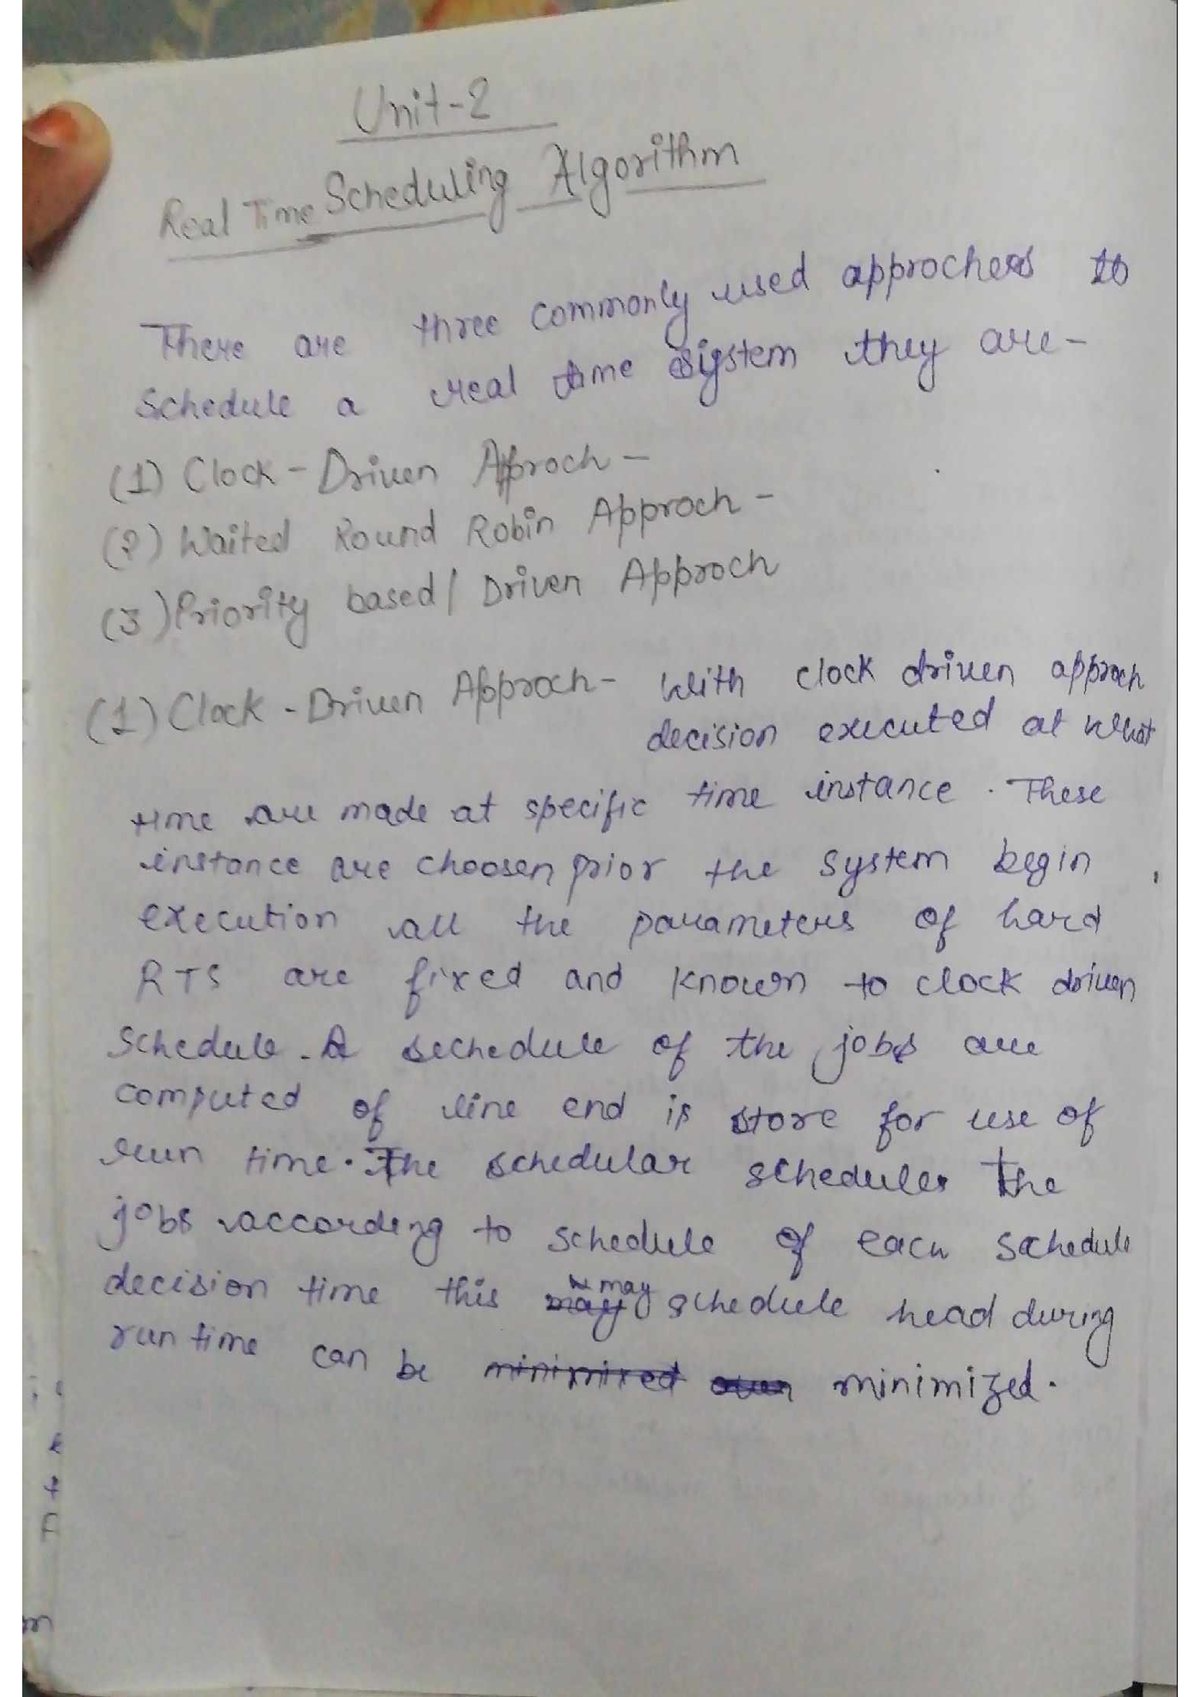 Unit-2
Real Time Scheduling Algorithm
There are three commonly used approches to
schedule a real time system they are-
(1) Clock-Driven Approch-
(2) Waited Round Robin Approch-
(3) Priority based/ Driven Approch
(1) Clock-Driven Approch- With clock driven approch
decision executed at what
time are made at specific time instance. These
instance are choosen prior the system begin
execution all the parameters of hard
RTS are fixed and known to clock driven
schedule. A sechedule of the jobs are
computed of line end is store for use of
run time. The schedular schedules the
jobs according to schedule of each schedule
decision time this may schedule head during
run time can be minimized.